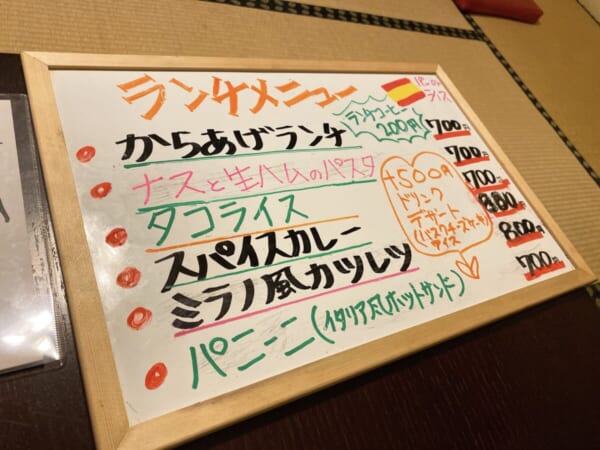 ランチメニュー
ランチコーヒー
200円
からあげランチ 700円
ナスと生ハムのパスタ 700円
タコライス 700円
スパイスカレー 880円
ミラノ風カツレツ 800円
パニーニ(イタリア風ホットサンド) 700円
+500円
ドリンク
デザート
アイス